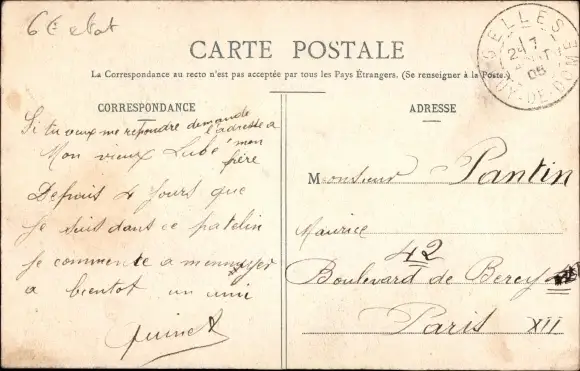 6c etat
CARTE POSTALE
La Correspondance au recto n'est pas acceptée par tous les Pays Étrangers. (Se renseigner à la Poste.)
GELLES
17
24
05
PUY-DE-DOME
CORRESPONDANCE
Si tu veux me repondre demande
l'adresse a
mon
frère
Mon vieux Lubé
Depuis 4 jours que
je suis dans ce patelin
je commence a mennuyer
a bientot un ami
Quinet
ADRESSE
Monsieur Pantin
Maurice
42
Boulevard de Bercy
Paris XII